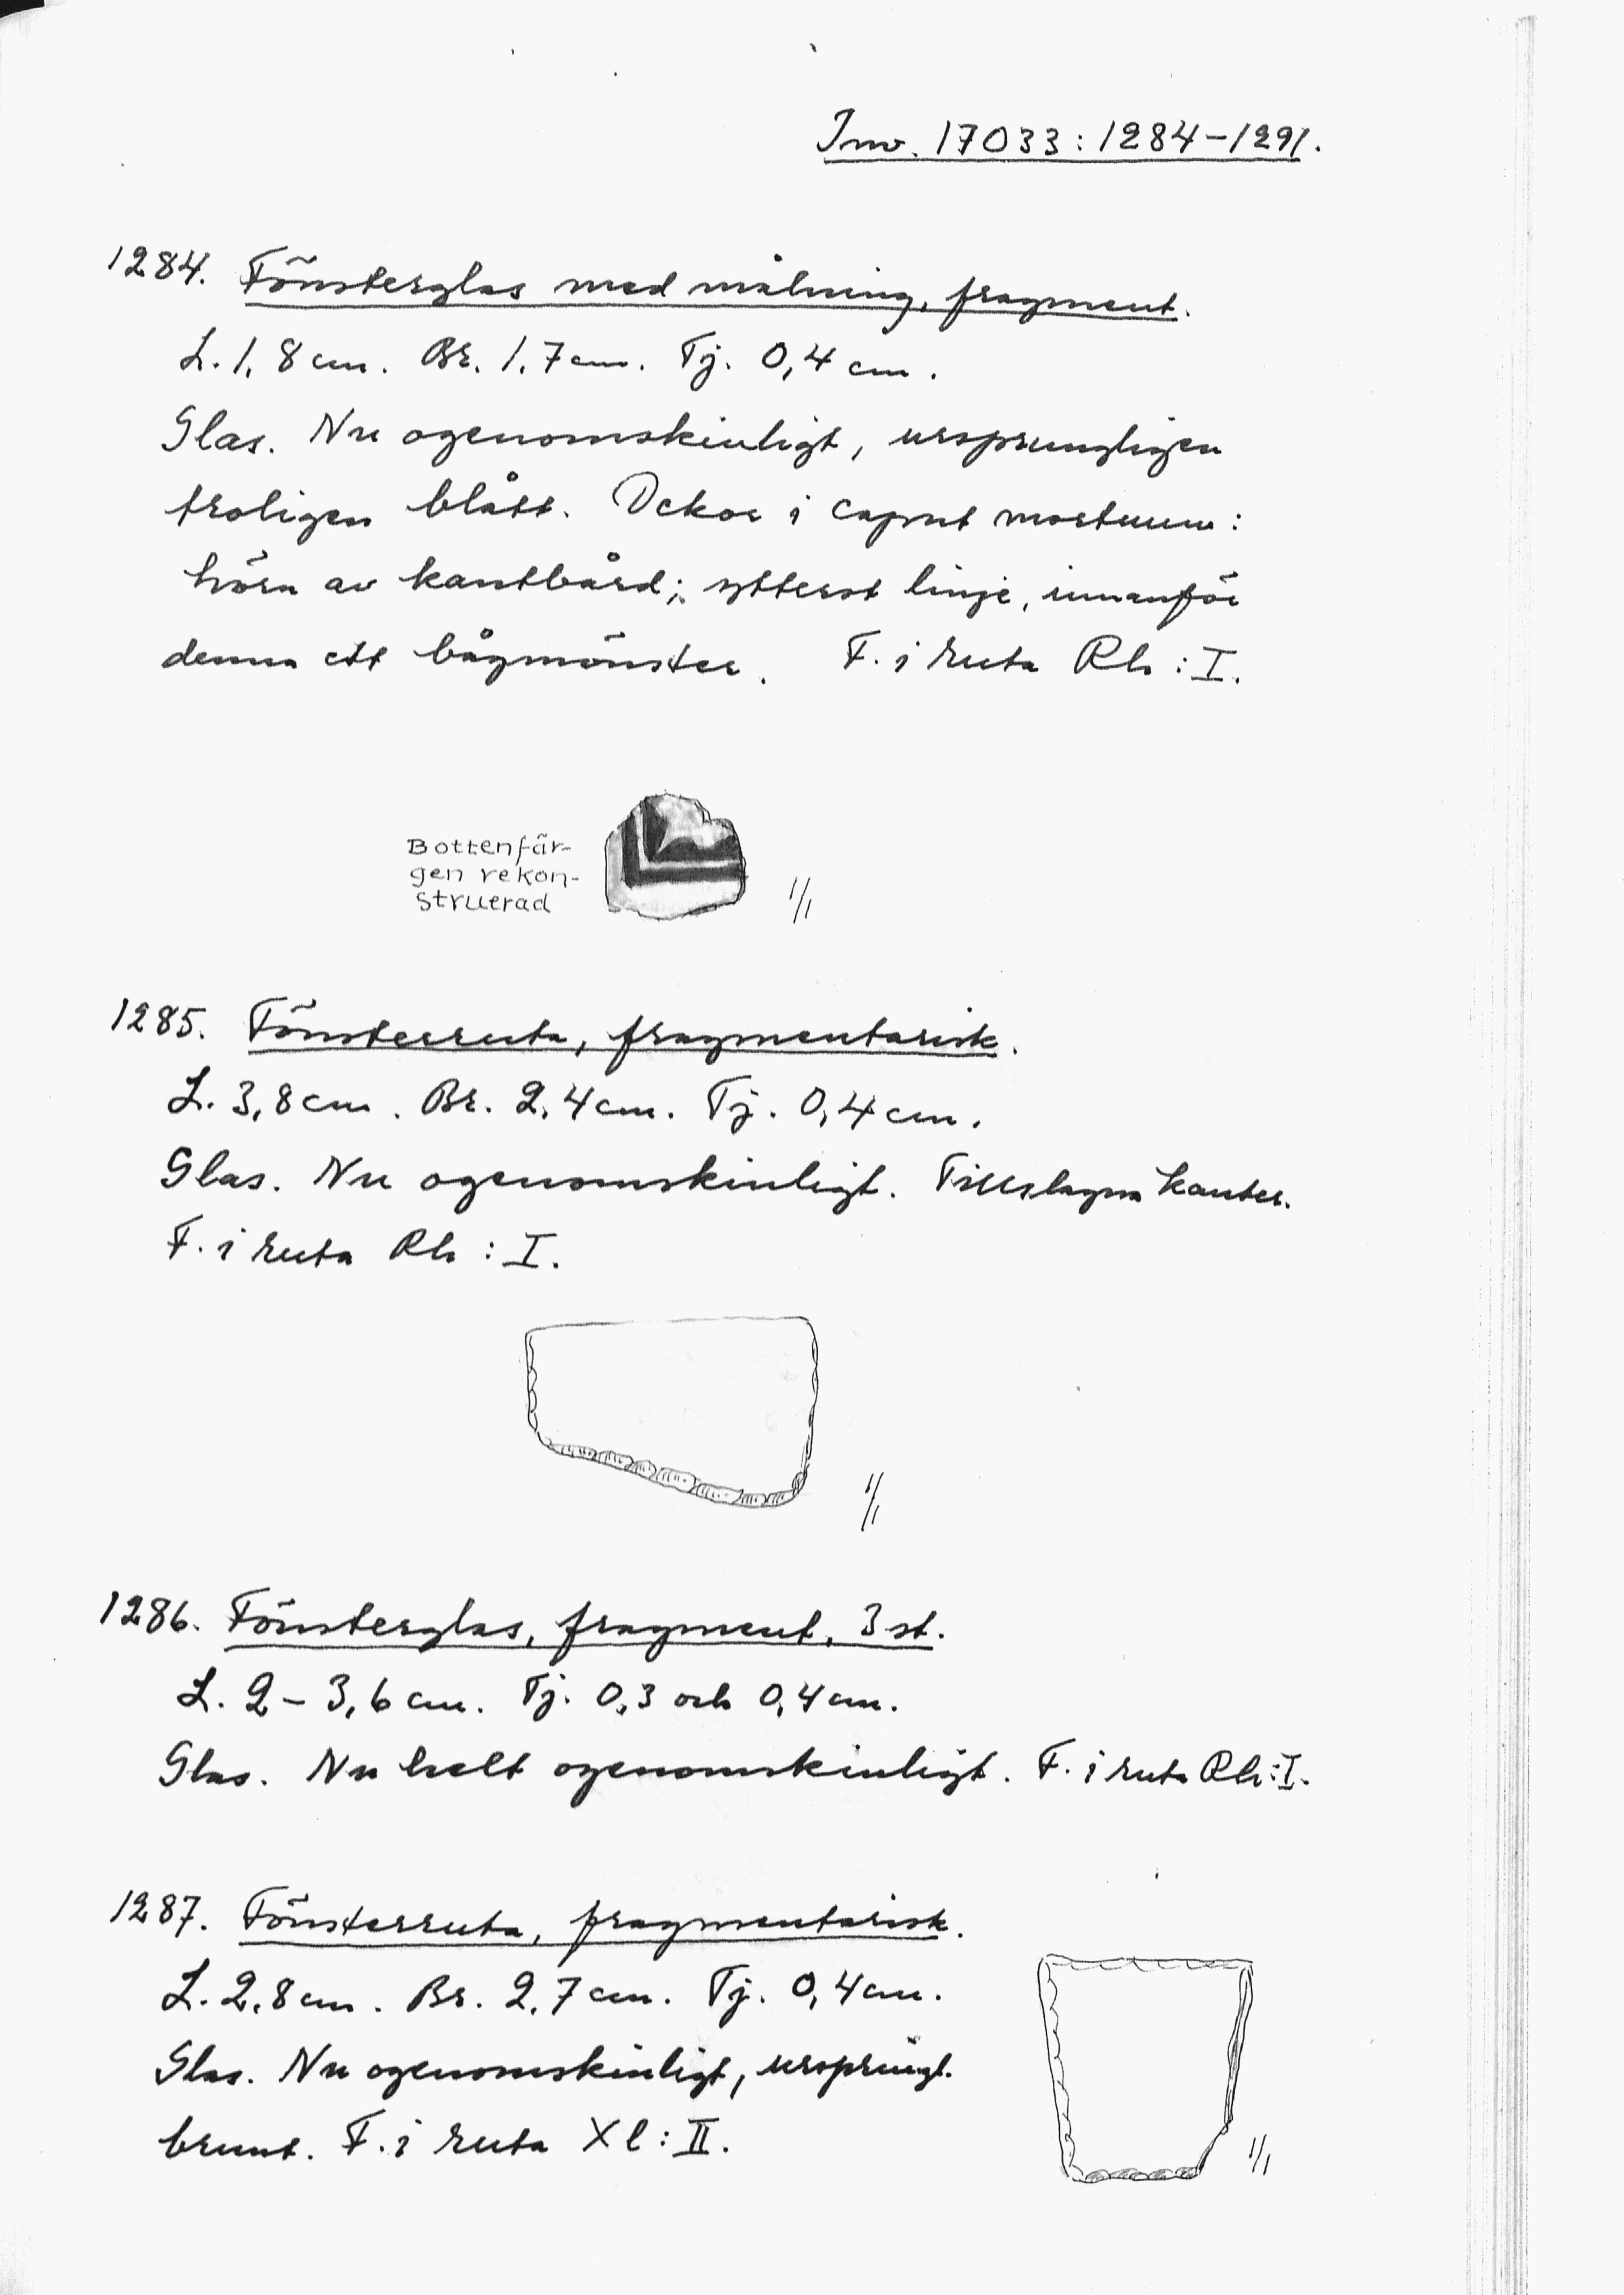 Inv. 17033:1284-1291.
1284. Fönsterglas med målning, fragment.
L. 1,8 cm. Br. 1,7 cm. Tj. 0,4 cm.
Glas. Nu ogenomskinligt, ursprungligen
troligen blått. Dekor i caput mortuum:
hörn av kantbård; ytterst linje, innanför
denna ett bågmönster. F. i ruta Rh:I.
Bottenfär-
gen rekon-
struerad
1/1
1285. Fönsterruta, fragmentarisk.
L. 3,8 cm. Br. 2,4 cm. Tj. 0,4 cm.
Glas. Nu ogenomskinligt. Tillslagna kanter.
F. i ruta Rh:I.
1/1
1286. Fönsterglas, fragment, 3 st.
L. 2-3,6 cm. Tj. 0,3 och 0,4 cm.
Glas. Nu helt ogenomskinligt. F. i ruta Rh:I.
1287. Fönsterruta, fragmentarisk.
L. 2,8 cm. Br. 2,7 cm. Tj. 0,4 cm.
Glas. Nu ogenomskinligt, ursprungl.
brunt. F. i ruta Xl:II.
1/1